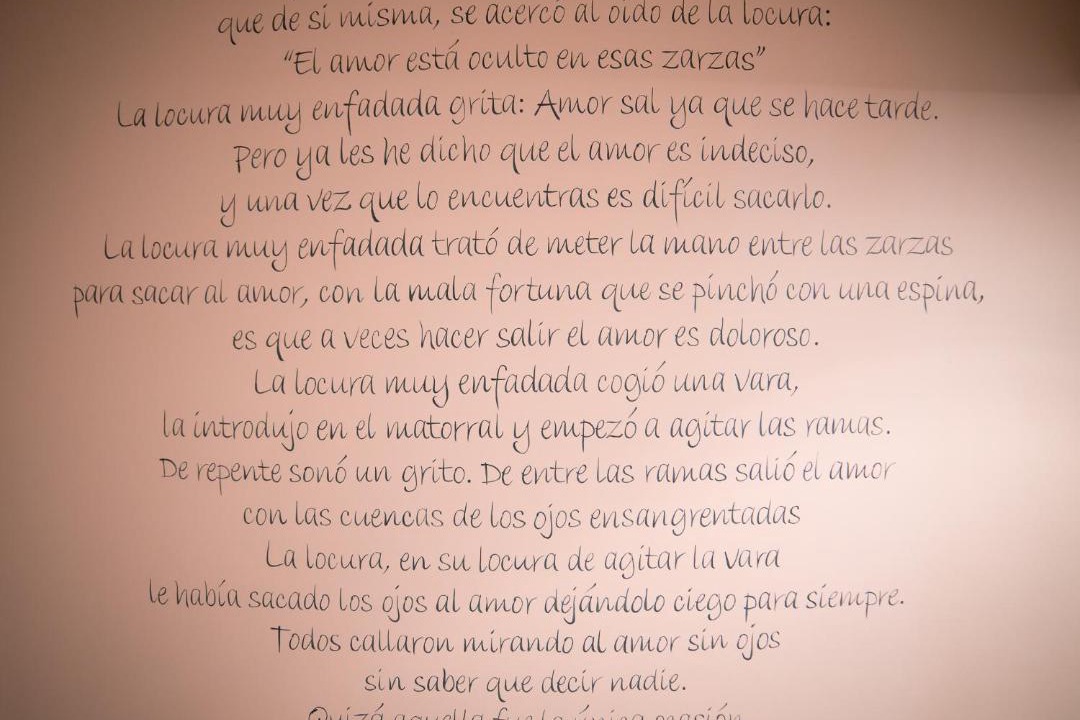 que de sí misma, se acercó al oído de la locura:
“El amor está oculto en esas zarzas”
La locura muy enfadada grita: Amor sal ya que se hace tarde.
Pero ya les he dicho que el amor es indeciso,
y una vez que lo encuentras es difícil sacarlo.
La locura muy enfadada trató de meter la mano entre las zarzas
para sacar al amor, con la mala fortuna que se pinchó con una espina,
es que a veces hacer salir el amor es doloroso.
La locura muy enfadada cogió una vara,
la introdujo en el matorral y empezó a agitar las ramas.
De repente sonó un grito. De entre las ramas salió el amor
con las cuencas de los ojos ensangrentadas
La locura, en su locura de agitar la vara
le había sacado los ojos al amor dejándolo ciego para siempre.
Todos callaron mirando al amor sin ojos
sin saber que decir nadie.
Quizá aquella fue la única ocasión